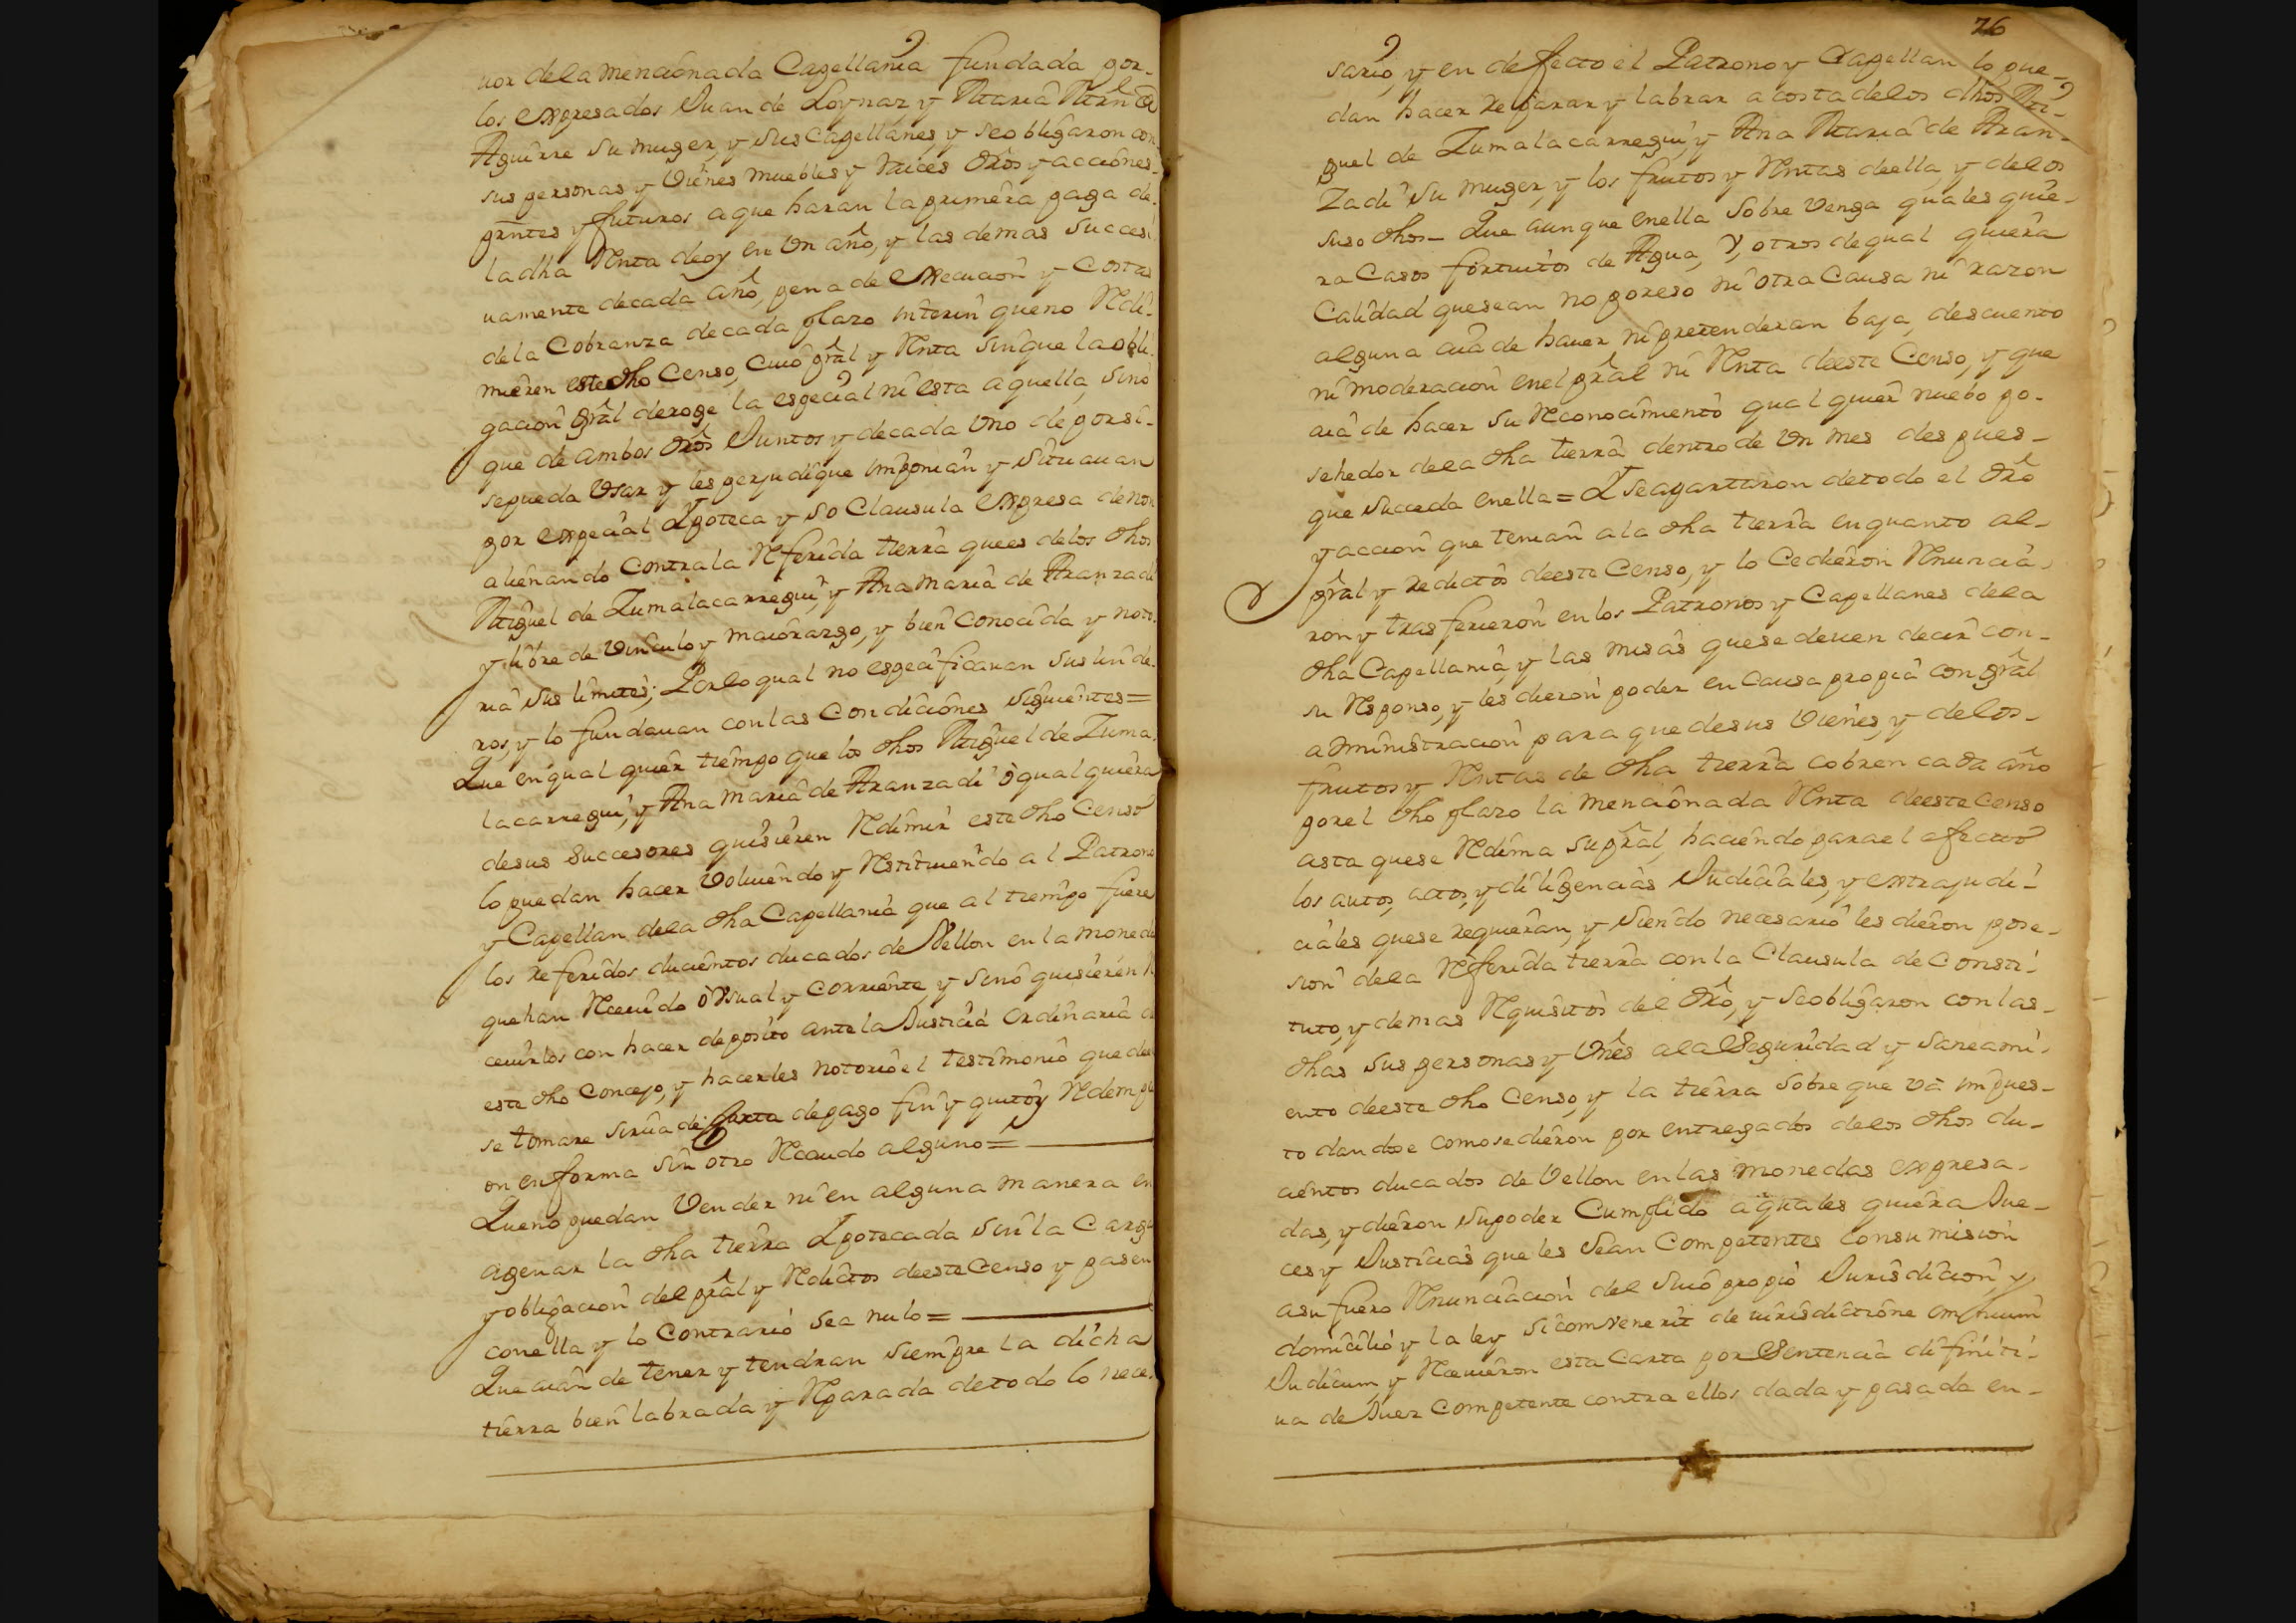 uor dela mencionada Capellania fundada por
los expresados Juan de Loynaz y Maria Mrn de
Aguirre su muger, y sus Capellanes, y se obligaron con
sus personas y Vienes muebles y raices dros y acciones
prntes y futuros a que haran la primera paga de
la dha Renta de oy en Un año, y las demas succesi
uamente de cada año, pena de execucion y costas
de la Cobranza de cada plazo interin que no Redi-
mieren este dho Censo, cuio pral y Renta sin que la obli-
gacion gral deroge la especial ni esta aquella, sino
que de ambos dros Juntos y de cada Uno de por si
se pueda Usar y les perjudique imponian y situauan
por expecial Ypoteca y so Clausula expresa de non
alienando contra la Referida tierra que es delos dhos
Miguel de Zumalacarregui, y Ana Maria de Aranzadi
y libre de Vinculo y maiorazgo, y bien conocida y noto-
ria sus limites; Por lo qual no especificauan sus linde-
ros, y lo fundauan con las Condiciones siguientes=
Que en qual quier tiempo que los dhos Miguel de Zuma-
lacarregui, y Ana Maria de Aranzadi ò qual quiera
de sus succesores quisieren Redimir este dho Censo
lo puedan hacer Voluiendo y Restituiendo al Patrono
y Capellan dela dha Capellania que al tiempo fuere
los referidos ducientos ducados de Vellon en la moneda
que han Receuido ò Vsual y corriente y sino quisieren Re
ceuirlos con hacer deposito ante la Justicia ordinaria de
este dho Concejo, y hacerles notorio el testimonio que de
se tomare sirua de Carta de pago fin y quito y Redempci
on en forma sin otro Recaudo alguno=
Que no puedan Vender ni en alguna manera en
agenar la dha tierra Ypotecada sin la Carga
y obligacion del pral y Reditos deeste Censo y pasen
con ella y lo Contrario sea nulo=
Que aian de tener y tendran siempre la dicha
tierra bien labrada y Reparada de todo lo nece-
76
sario, y en defecto el Patrono y Capellan lo pue-
dan hacer reparar y labrar a costa delos dhos Mi-
guel de Zumalacarregui, y Ana Maria de Aran-
zadi su muger, y los frutos y Rentas deella, y delos
suso dhos- Que aunque en ella sobre Venga quales quie-
ra Casos fortuitos de Agua, Y, otros de qual quiera
Calidad que sean no por eso ni otra Causa ni razon
alguna aia de hauer ni pretenderan baja, descuento
ni moderacion en el pral ni Renta deeste Censo, y que
aia de hacer su Reconocimiento qual quier nuebo po-
sehedor dela dha tierra dentro de Un mes despues
que succeda en ella= Y se apartaron de todo el dro
y accion que tenian a la dha tierra en quanto al
pral y redictos deeste Censo, y lo Cedieron Renuncia-
ron y trasferieron en los Patronos y Capellanes dela
dha Capellania, y las misas que se deuen decir con
su Responso, y les dieron poder en Causa propia con gral
administracion para que de sus Vienes, y delos
frutos y Rentas de dha tierra cobren cada año
por el dho plazo la mencionada Renta deeste Censo
asta que se Redima su pral, haciendo para el efecto
los autos, actos, y diligencias Judiciales, y extrajudi-
ciales que se requieran, y siendo necesario les dieron pose-
sion dela Referida tierra con la Clausula de Consti-
tuto, y demas Requisitos del dro, y se obligaron con las
dhas sus personas y Vnes ala Seguridad y saneami-
ento deeste dho Censo, y la tierra sobre que và impues-
to dandose como se dieron por entregados delos dhos du-
cientos ducados de Vellon en las monedas expresa-
das, y dieron su poder Cumplido a quales quiera Jue-
ces y Justicias que les sean Competentes con sumision
a su fuero Renunciacion del suio propio Jurisdicion, y
domicilio y la ley si convenerit de iurisdictione omnium
Judicum y Receuieron esta Carta por Sentencia difiniti-
ua de Juez Competente contra ellos dada y pasada en